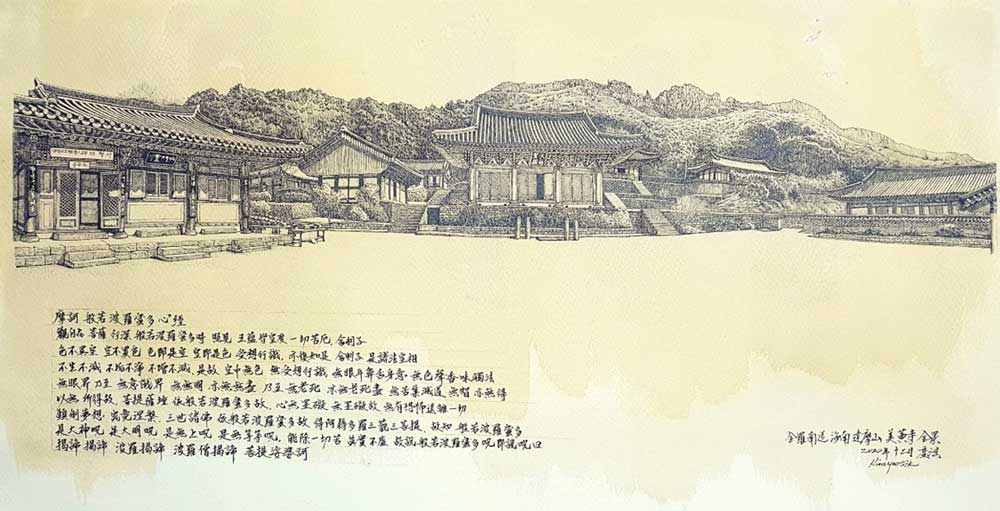 摩訶 般若波羅蜜多心經
觀自在菩薩 行深 般若波羅蜜多時 照見 五蘊皆空度 一切苦厄, 舍利子
色不異空 空不異色 色即是空 空即是色 受想行識, 亦復如是 舍利子 是諸法空相
不生不滅 不垢不淨 不增不減, 是故 空中無色 無受想行識 無眼耳鼻舌身意 無色聲香味觸法
無眼界 乃至 無意識界 無無明 亦無無盡 乃至 無老死 亦無老死盡 無苦集滅道 無智 亦無得
以無所得故, 菩提薩埵 依般若波羅蜜多故, 心無罣礙 無罣礙故 無有恐怖遠離一切
顚倒夢想 究竟涅槃, 三世諸佛 依般若波羅蜜多故 得阿耨多羅三藐三菩提, 故知 般若波羅蜜多
是大神呪 是大明呪 是無上呪 是無等等呪, 能除一切苦 眞實不虛 故說 般若波羅蜜多呪 即說呪曰
揭諦 揭諦 波羅揭諦 波羅僧揭諦 菩提娑婆訶
全羅南道 海南 達摩山 美黃寺 全景
2020年 十二月